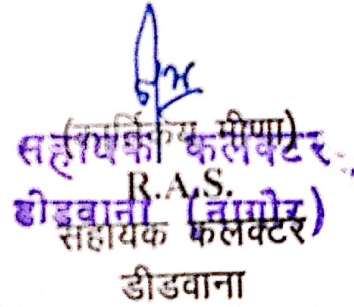 (कार्तिकेय मीणा)
सहायक कलक्टर
R.A.S.
डीडवाना (नागौर)
सहायक कलक्टर
डीडवाना